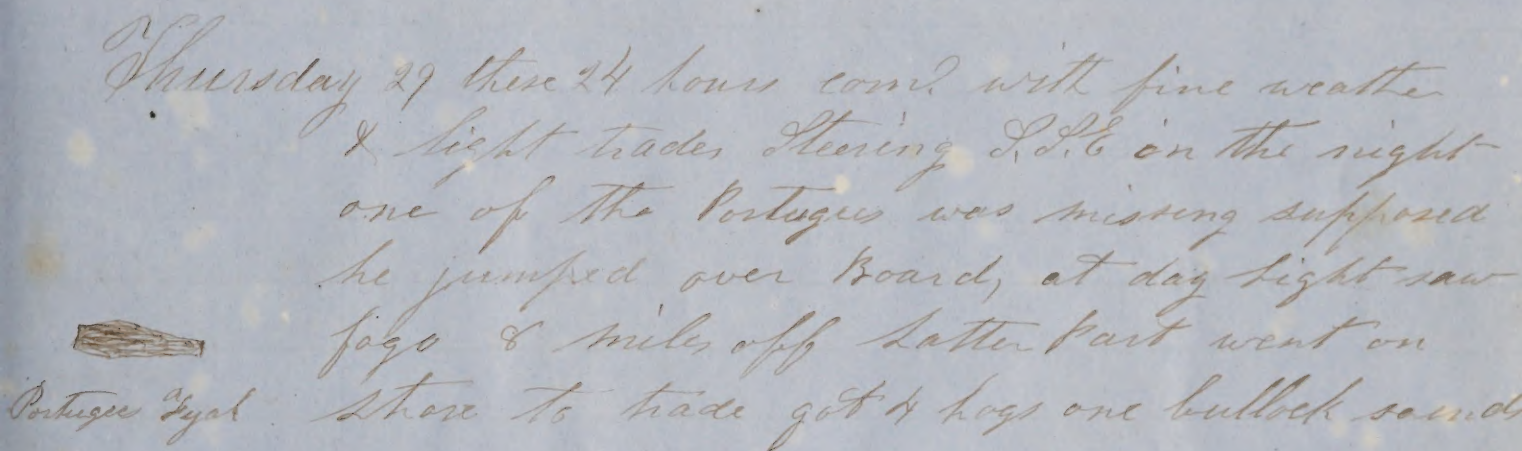 Thursday 29 these 24 hours com? with fine weathe
& light trades Steering S.S.E in the night
one of the Portugees was missing supposed
he jumped over Board, at day light saw
fogo 8 miles off Latter Part went on
Portugees Fyal shore to trade got 4 hogs one bullock